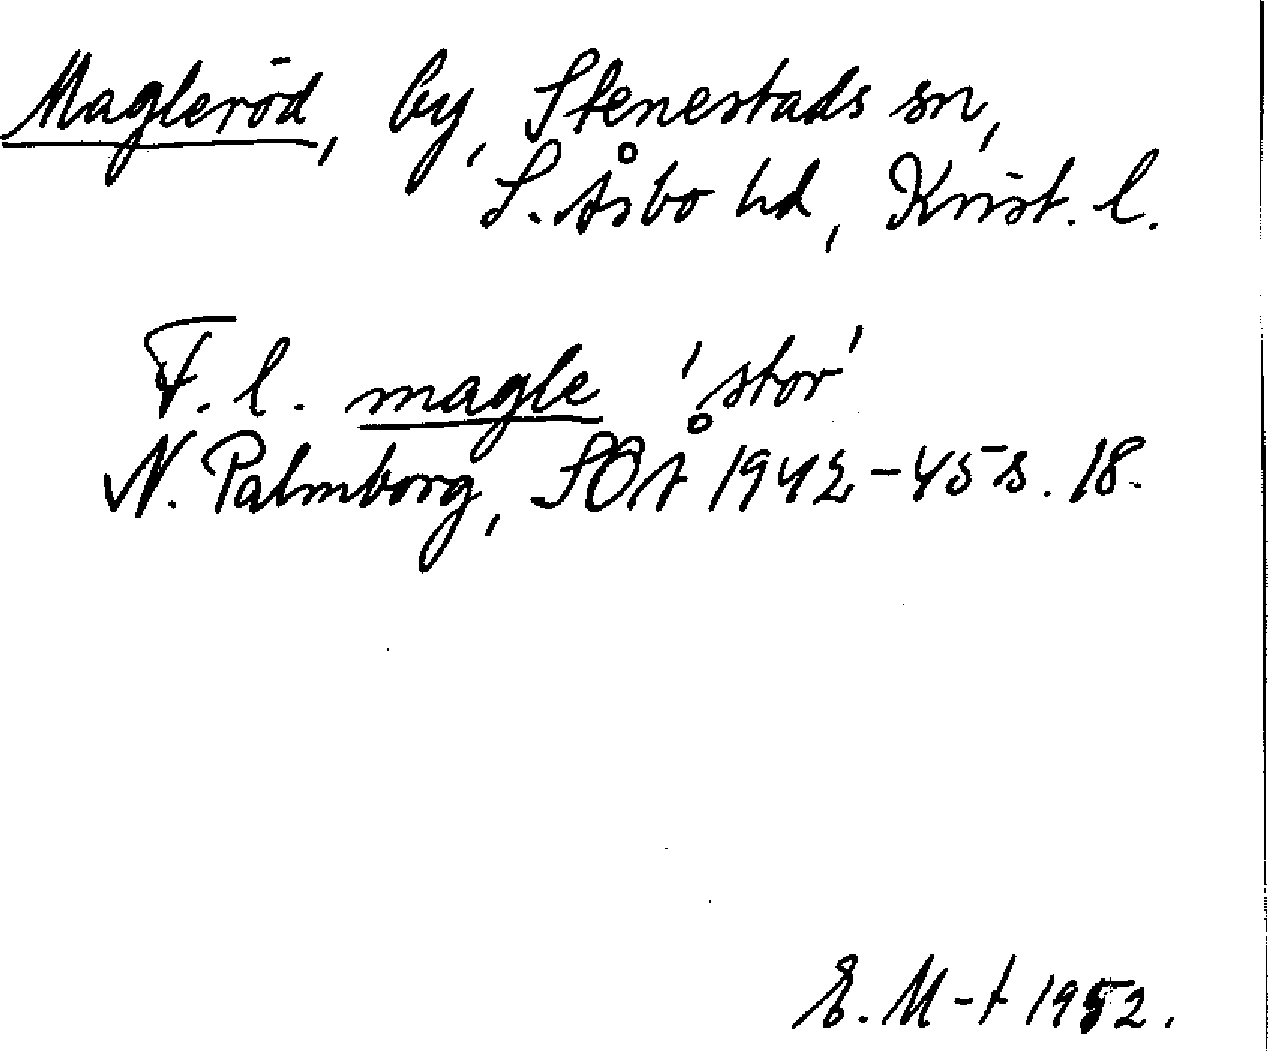 Magleröd, by, Stenestads sn,
S. Åsbo hd, Krist. l.
F. l. magle 'stor'
N. Palmborg, SOÅ 1942-45 s. 18.
E. M-t 1952.